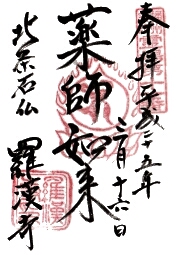 奉拝 平成二十五年
二月十六日
薬師如来
北条石仏
羅漢寺